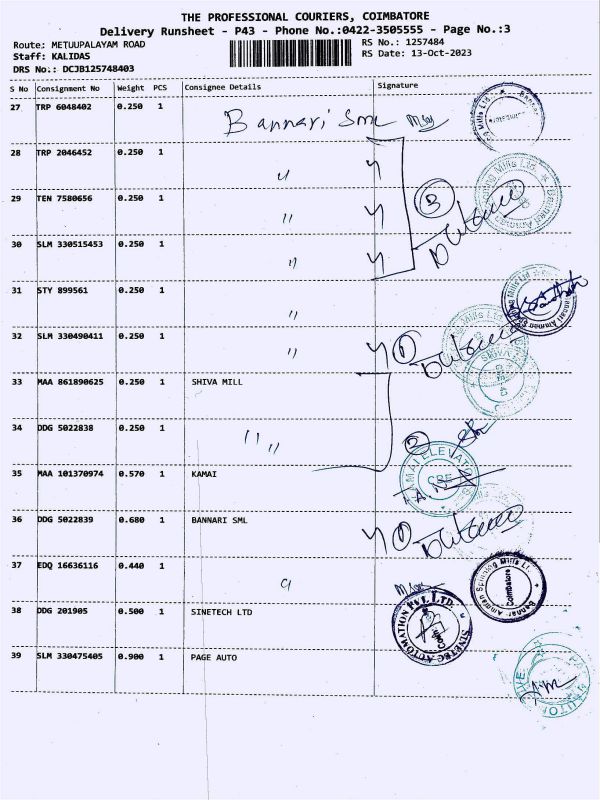 THE PROFESSIONAL COURIERS, COIMBATORE
Delivery Runsheet - P43 - Phone No.:0422-3505555 - Page No.:3
Route: METUUPALAYAM ROAD RS No.: 1257484
Staff: KALIDAS RS Date: 13-Oct-2023
DRS No.: DCJB125748403
S No Consignment No Weight PCS Consignee Details Signature
27 TRP 6048402 0.250 1 Bannari Sml
28 TRP 2046452 0.250 1 "
29 TEN 7580656 0.250 1 " 3
30 SLM 330515453 0.250 1 "
31 STY 899561 0.250 1 "
32 SLM 330490411 0.250 1 " 1
33 MAA 861890625 0.250 1 SHIVA MILL
34 DDG 5022838 0.250 1 " " 2
35 MAA 101370974 0.570 1 KAMAI
36 DDG 5022839 0.680 1 BANNARI SML 1
37 EDQ 16636116 0.440 1 "
38 DDG 201905 0.500 1 SINETECH LTD
39 SLM 330475405 0.900 1 PAGE AUTO
Bannari Amman Spinning Mills Ltd
Coimbatore
ELEVATOR
CBE
SINETEC AUTOMATION PVT. LTD.